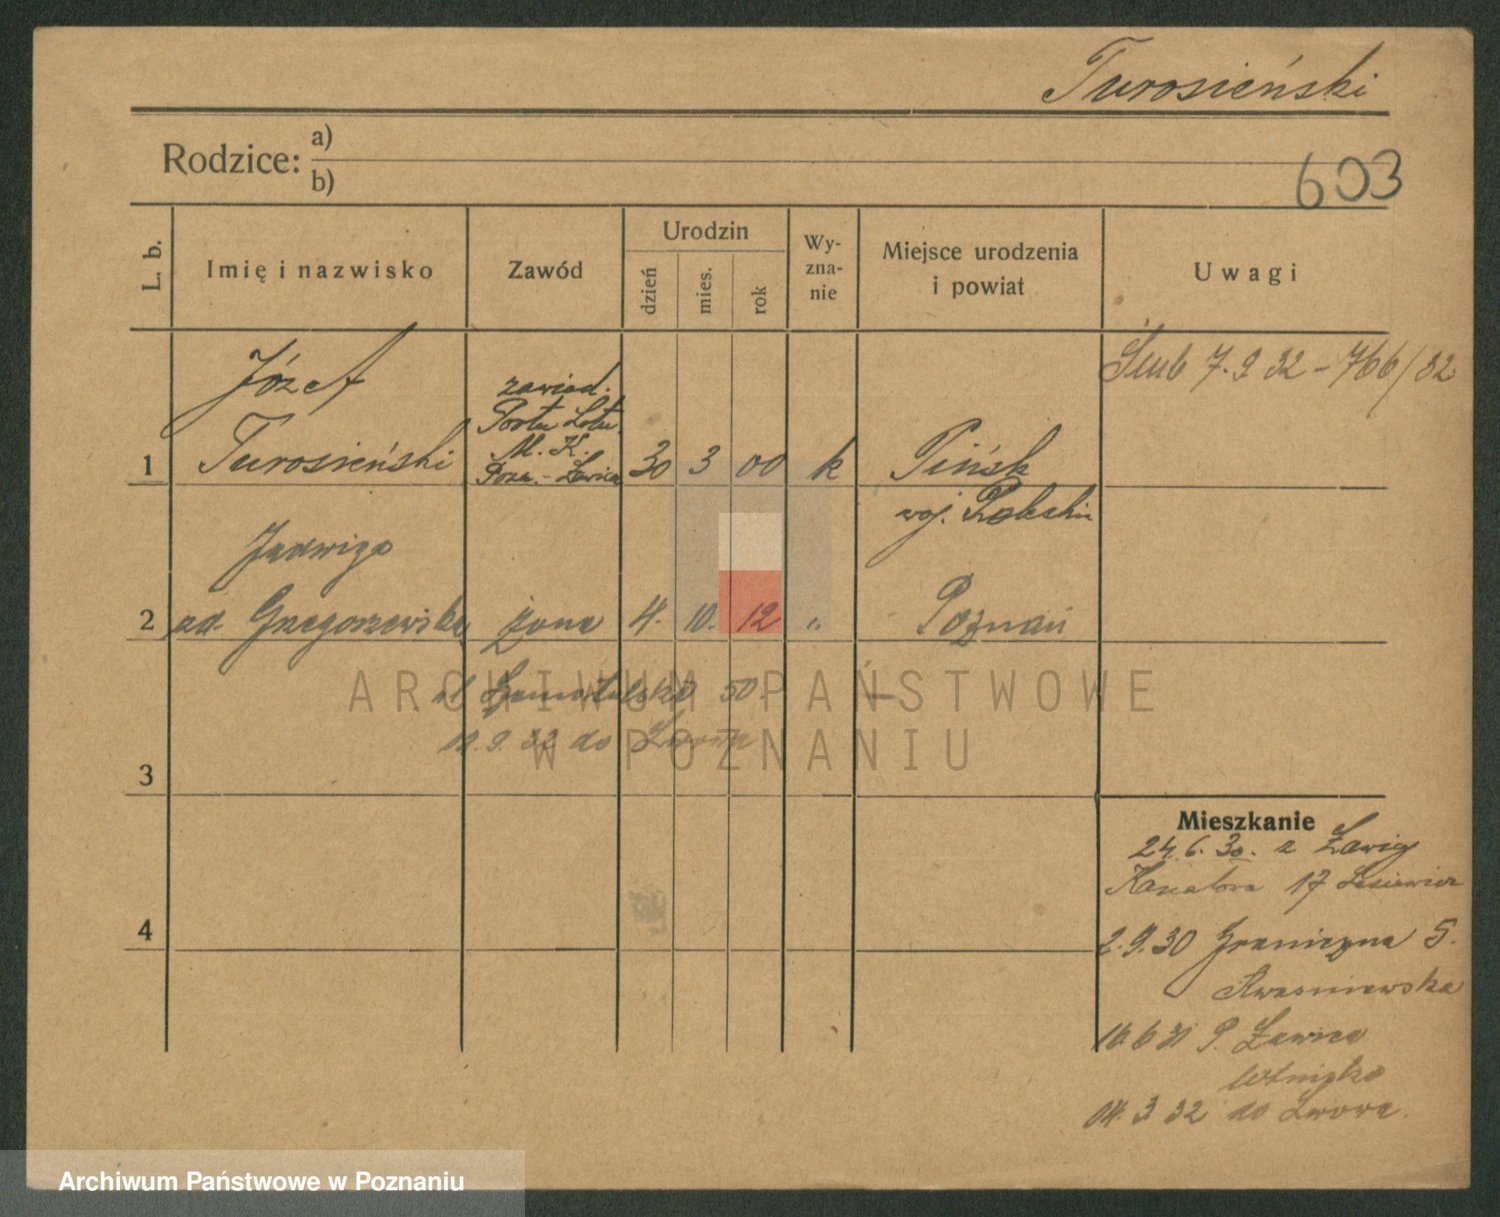 Turosieński
Rodzice: a)
b)
603
L. b.
Imię i nazwisko
Zawód
Urodzin
dzień
mies.
rok
Wy-
zna-
nie
Miejsce urodzenia
i powiat
Uwagi
Ślub 7.9 32 - 766/32
1
Józef
Turosieński
zawiad.
Portu Lotn.
M. K.
Pozn. - Ławica
30 3 00 k
Pińsk
woj. Poleskie
2
Jadwiga
zd. Grzegorzewska
żona
4. 10. 12 "
Poznań
ul Szamotulska 50. —
11.9.32 do Lwowa
3
4
Mieszkanie
24.6.30. z Ławicy
17
2.9.30 Graniczna 5.
Kwaśniewska
16.6 31 P. Ławica
Lotnisko
04.3.32 do Lwowa.
ARCHIWUM PAŃSTWOWE
W POZNANIU
Archiwum Państwowe w Poznaniu